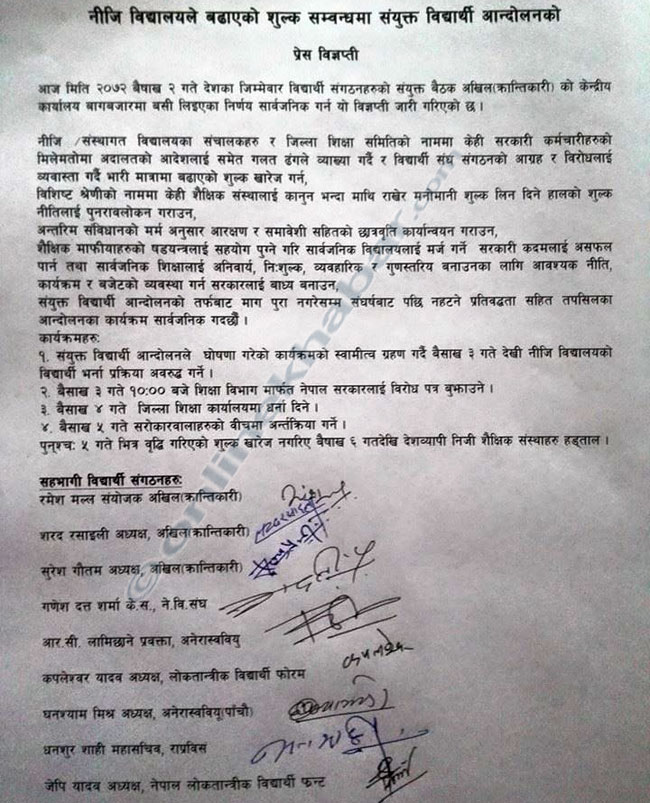 नीजि विद्यालयले बढाएको शुल्क सम्वन्धमा संयुक्त विद्यार्थी आन्दोलनको
प्रेस विज्ञप्ती
आज मिति २०७२ बैषाख २ गते देशका जिम्मेवार विद्यार्थी संगठनहरुको संयुक्त बैठक अखिल(क्रान्तिकारी) को केन्द्रीय
कार्यालय बागबजारमा बसी लिइएका निर्णय सार्वजनिक गर्न यो विज्ञप्ती जारी गरिएको छ ।
नीजि /संस्थागत विद्यालयका संचालकहरु र जिल्ला शिक्षा समितिको नाममा केही सरकारी कर्मचारीहरुको
मिलेमतोमा अदालतको आदेशलाई समेत गलत ढंगले व्याख्या गर्दै र विद्यार्थी संघ संगठनको आग्रह र विरोधलाई
व्यवास्ता गर्दै भारी मात्रामा बढाएको शुल्क खारेज गर्न,
विशिष्ट श्रेणीको नाममा केही शैक्षिक संस्थालाई कानुन भन्दा माथि राखेर मनोमानी शुल्क लिन दिने हालको शुल्क
नीतिलाई पुनरावलोकन गराउन,
अन्तरिम संविधानको मर्म अनुसार आरक्षण र समावेशी सहितको छात्रवृति कार्यान्वयन गराउन,
शैक्षिक माफीयाहरुको षडयन्त्रलाई सहयोग पुग्ने गरि सार्वजनिक विद्यालयलाई मर्ज गर्ने सरकारी कदमलाई असफल
पार्न तथा सार्वजनिक शिक्षालाई अनिवार्य, नि:शुल्क, व्यवहारिक र गुणस्तरिय बनाउनका लागि आवश्यक नीति,
कार्यक्रम र बजेटको व्यवस्था गर्न सरकारलाई बाध्य बनाउन,
संयुक्त विद्यार्थी आन्दोलनको तर्फबाट माग पुरा नगरेसम्म संघर्षबाट पछि नहटने प्रतिवद्धता सहित तपसिलका
आन्दोलनका कार्यक्रम सार्वजनिक गर्दछौँ ।
कार्यक्रमहरु:
१. संयुक्त विद्यार्थी आन्दोलनले घोषणा गरेको कार्यक्रमको स्वामीत्व ग्रहण गर्दै बैसाख ३ गते देखी नीजि विद्यालयको
विद्यार्थी भर्ना प्रक्रिया अवरुद्ध गर्ने ।
२. बैसाख ३ गते १०:०० बजे शिक्षा विभाग मार्फत नेपाल सरकारलाई विरोध पत्र बुझाउने ।
३. बैसाख ४ गते जिल्ला शिक्षा कार्यालयमा धर्ना दिने ।
४. बैसाख ५ गते सरोकारवालाहरुको वीचमा अर्न्तक्रिया गर्ने ।
पुनश्च: ५ गते भित्र वृद्धि गरिएको शुल्क खारेज नगरिए बैषाख ६ गतदेखि देशव्यापी निजी शैक्षिक संस्थाहरु हड्ताल ।
सहभागी विद्यार्थी संगठनहरु:
रमेश मल्ल संयोजक अखिल(क्रान्तिकारी)
शरद रसाइली अध्यक्ष, अखिल(क्रान्तिकारी)
सुरेश गौतम अध्यक्ष, अखिल(क्रान्तिकारी)
गणेश दत्त शर्मा के.स., ने.वि.संघ
आर.सी. लामिछाने प्रवक्ता, अनेरास्ववियु
कपलेश्वर यादव अध्यक्ष, लोकतान्त्रीक विद्यार्थी फोरम
घनश्याम मिश्र अध्यक्ष, अनेरास्ववियु(पांचौ)
धनशुर शाही महासचिव, राप्रविस
जेपि यादव अध्यक्ष, नेपाल लोकतान्त्रीक विद्यार्थी फ्रन्ट
© onlinekhabar.com